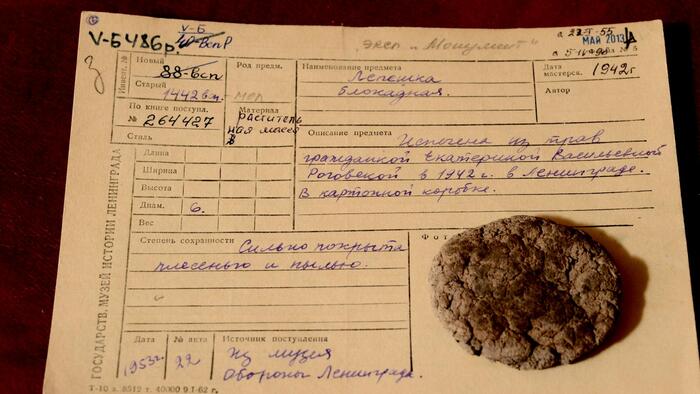 V-Б 486р.
V-Б
эксп „Монумент“
МАЙ 2013
№ 5
Инвент. №
Новый
88-всп
Старый
1442 вп.
По книге поступл.
№ 264427
Стиль
Род предм.
Материал
раститель
ная масса
Наименование предмета
Лепёшка
блокадная.
Дата
мастерск.
1942г
Автор
Описание предмета
Испечена из трав
гражданкой Екатериной Васильевной
Роговской в 1942 г. в Ленинграде.
В картонной коробке.
Длина
Ширина
Высота
Диам. 6.
Вес
Степень сохранности
Сильно покрыта
плесенью и пылью
Фот
Дата
1953г.
№ акта
22
Источник поступления
Из музея
Обороны Ленинграда.
ГОСУДАРСТВ. МУЗЕЙ ИСТОРИИ ЛЕНИНГРАДА
Т-10 з. 8512 т. 40000 9/I-62 г.